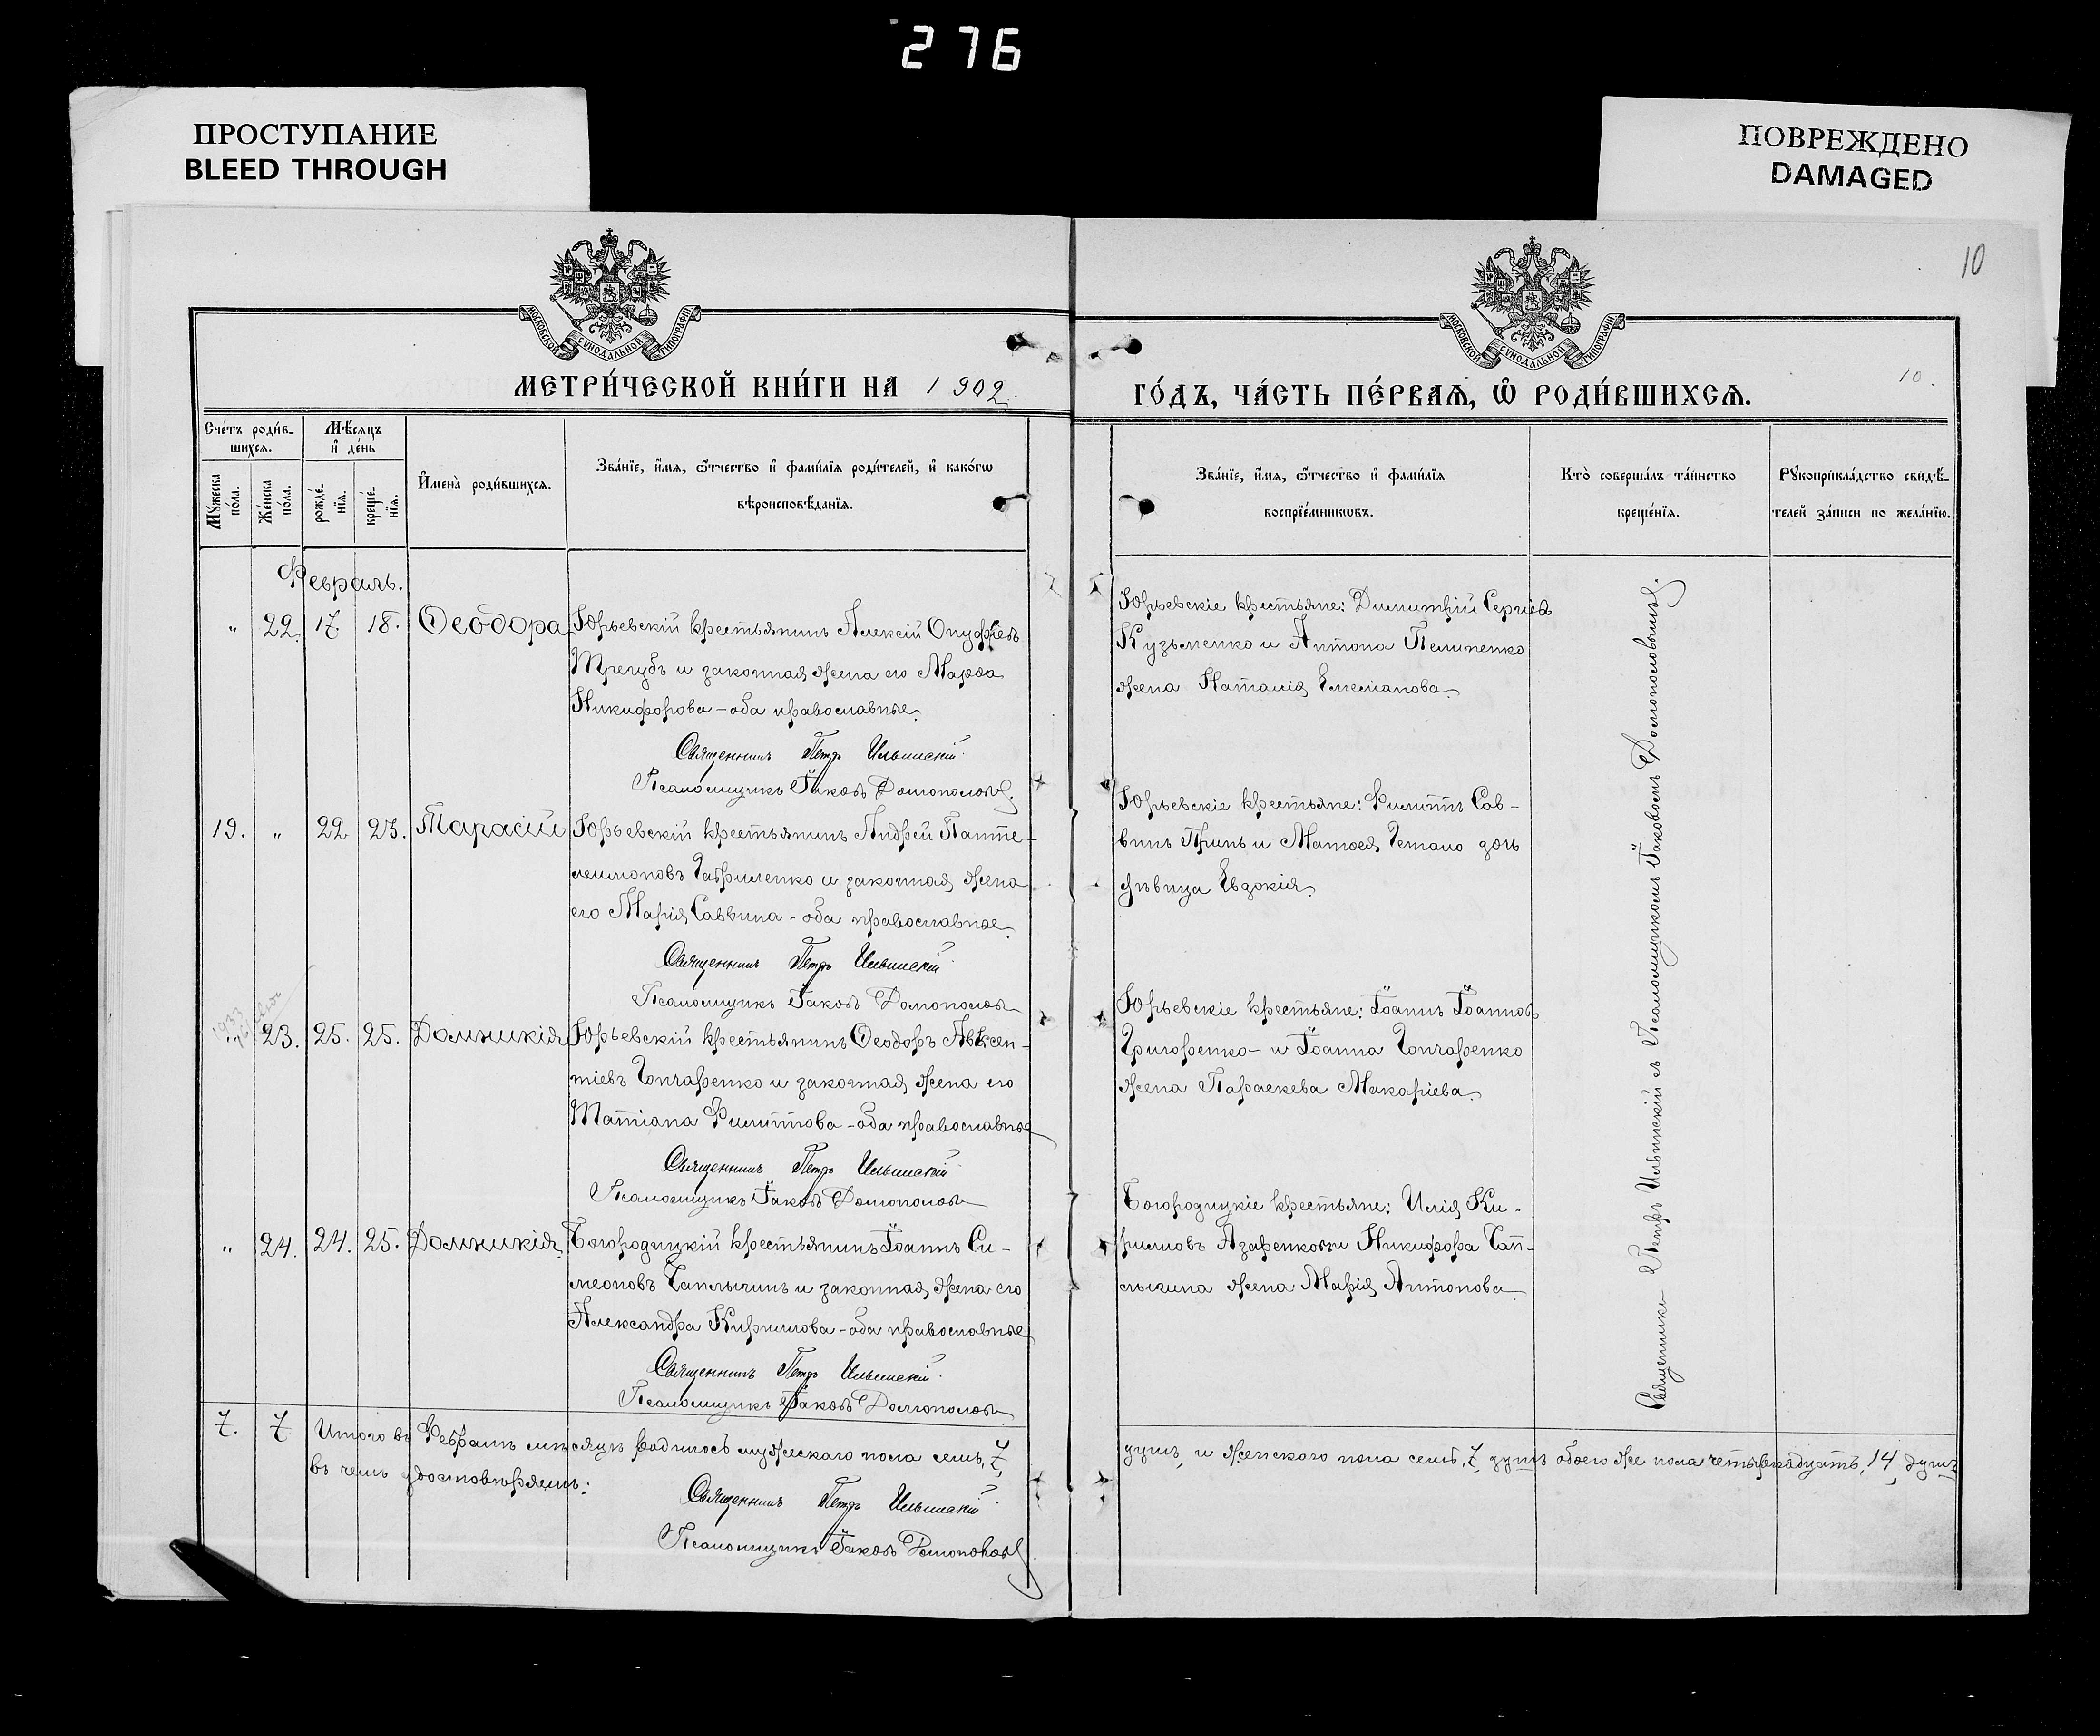 276
ПРОСТУПАНИЕ
BLEED THROUGH
ПОВРЕЖДЕНО
DAMAGED
10
МОСКОВСКОЙ СѴНОДАЛЬНОЙ ТИПОГРАФІИ
МОСКОВСКОЙ СѴНОДАЛЬНОЙ ТИПОГРАФІИ
МЕТРИ́ЧЕСКОЙ КНИ́ГИ НА 1902
ГО́ДЪ, ЧА́СТЬ ПЕ́РВАѦ, Ѿ РОДИ́ВШИХСѦ.
10.
Сче́тъ роди́в-
шихся.
Мѣ́сяцъ
и҆ де́нь
Мꙋжеска по́ла.
Же́нска по́ла.
рожде́-
нїя.
креще́-
нїя.
И҆мена̀ роди́вшихся.
Зва́нїе, и҆́мя, ѻ҆́тчество и҆ фами́лїя роди́телей, и҆ како́гѡ
вѣроисповѣ́данїя.
Зва́нїе, и҆́мя, ѻ҆́тчество и҆ фами́лїя
воспрїе́мникѡвъ.
Кто̀ соверша́лъ та́инство
креще́нїя.
Рꙋкоприкла́дство свидѣ́-
телей за́писи по жела́нїю.
Февраль.
" 22. 17 18. Ѳеодора
Юрьевскій крестьянинъ Алексій Онуфріевъ
Трегубъ и законная жена его Марѳа
Никифорова - оба православные.
Священникъ Петръ Ильинскій
Псаломщикъ Іаковъ Домополовъ
Юрьевскіе крестьяне: Димитрій Сергіевъ
Кузьменко и Антона Пелипенко
жена Наталія Емеліанова.
19. " 22 23. Тарасій
Юрьевскій крестьянинъ Андрей Панте-
леимоновъ Гавриленко и законная жена
его Марія Саввина - оба православные.
Священникъ Петръ Ильинскій
Псаломщикъ Іаковъ
Юрьевскіе крестьяне: Филиппъ Сав-
винъ и Матѳея дочь
дѣвица Евдокія.
1933
" 23. 25. 25. Домникія
Юрьевскій крестьянинъ Ѳеодоръ Авксен-
тіевъ Гончаренко и законная жена его
Татіана Филиппова - оба православные
Священникъ Петръ Ильинскій
Псаломщикъ Іаковъ
Юрьевскіе крестьяне: Іоаннъ Іоанновъ
Григоренко и Іоанна Гончаренко
жена Параскева Макаріева.
" 24. 24. 25. Домникія
Богородицкій крестьянинъ Іоаннъ Си-
меоновъ Саплычинъ и законная жена его
Александра Кириллова - оба православные
Священникъ Петръ Ильинскій
Псаломщикъ Іаковъ
Богородицкіе крестьяне: Илія Ки-
рилловъ Азаренковъ и Никифора Сап-
лычина жена Марія Антонова
Священникъ Петръ Ильинскій съ Псаломщикомъ Іаковомъ
7. 7 Итого въ Февралѣ мѣсяцѣ родилось мужескаго пола семь, 7,
душъ, и женскаго пола семь, 7, душъ обоего же пола четырнадцать, 14, душъ
въ чемъ удостовѣряемъ:
Священникъ Петръ Ильинскій
Псаломщикъ Іаковъ